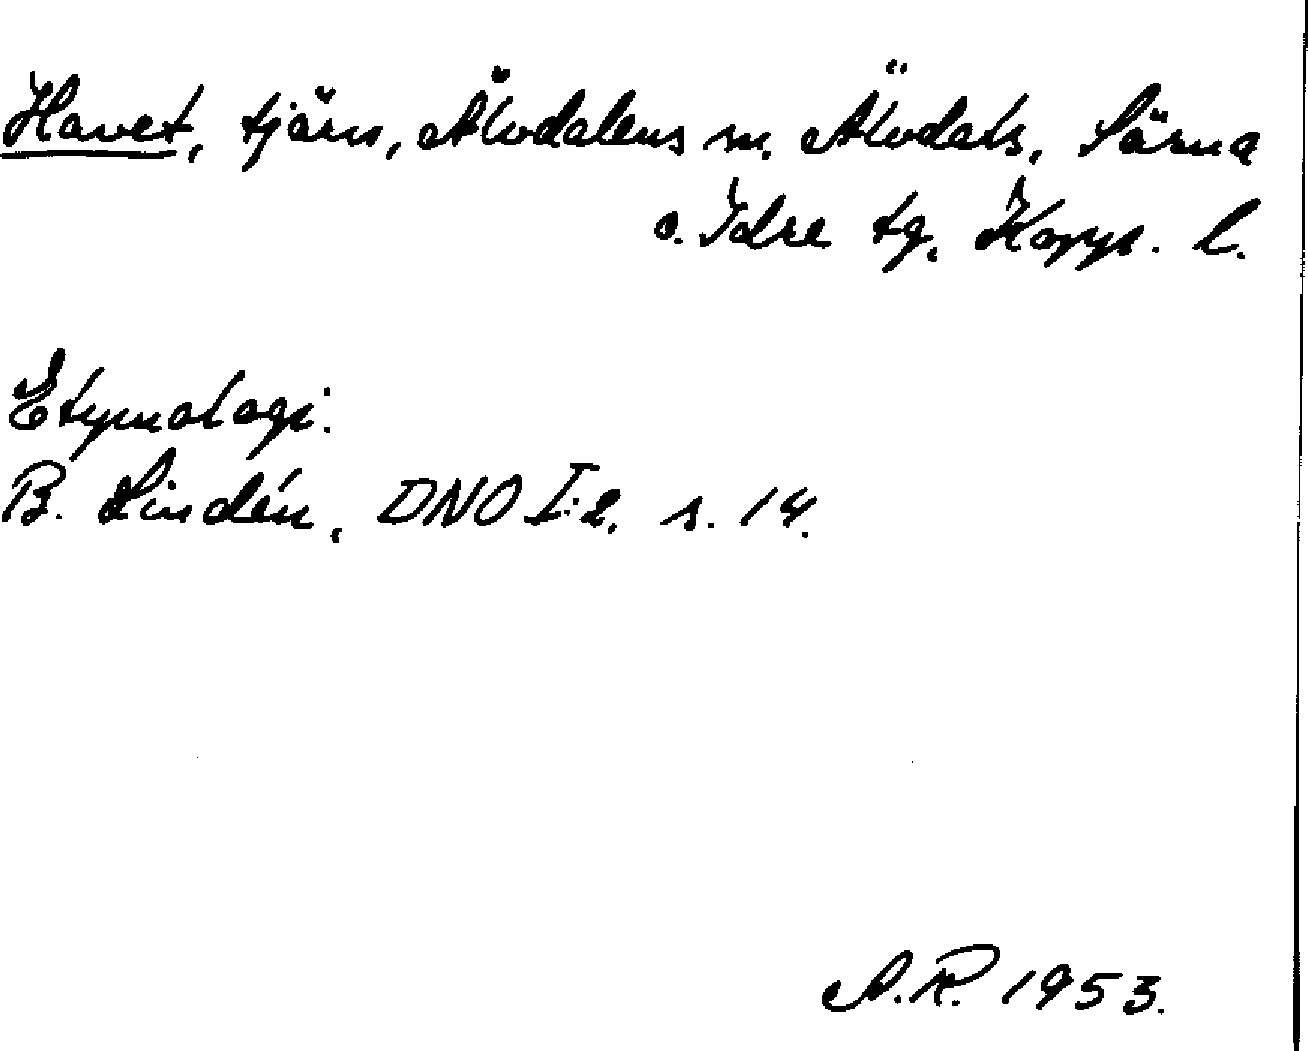 Havet, tjärn, Älvdalens sn. Älvdals, Särna
o. Idre tg. Kopp. l.
Etymologi:
B. Lindén, DNO I:2, s. 14.
A.R. 1953.